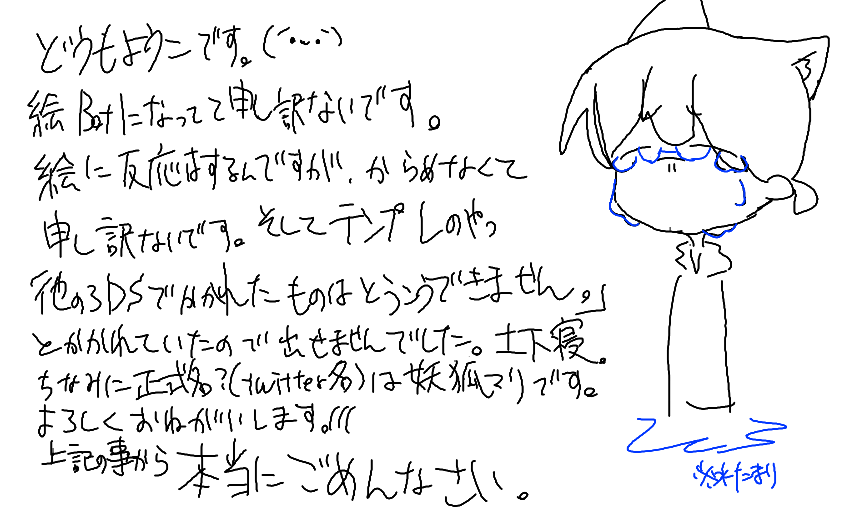 どうもようこです。(´･･･`)
絵Botになってて申し訳ないです。
絵に反応はするんですが、からめなくて
申し訳ないです。そしてテンプレのやつ
他の3DSでかかれたものはとうこうできません。」
とかかれていたので出せませんでした。土下寝。
ちなみに正式名?(twitter名)は妖狐マリです。
よろしくおねがいします。///
上記の事から本当にごめんなさい。
水たまり